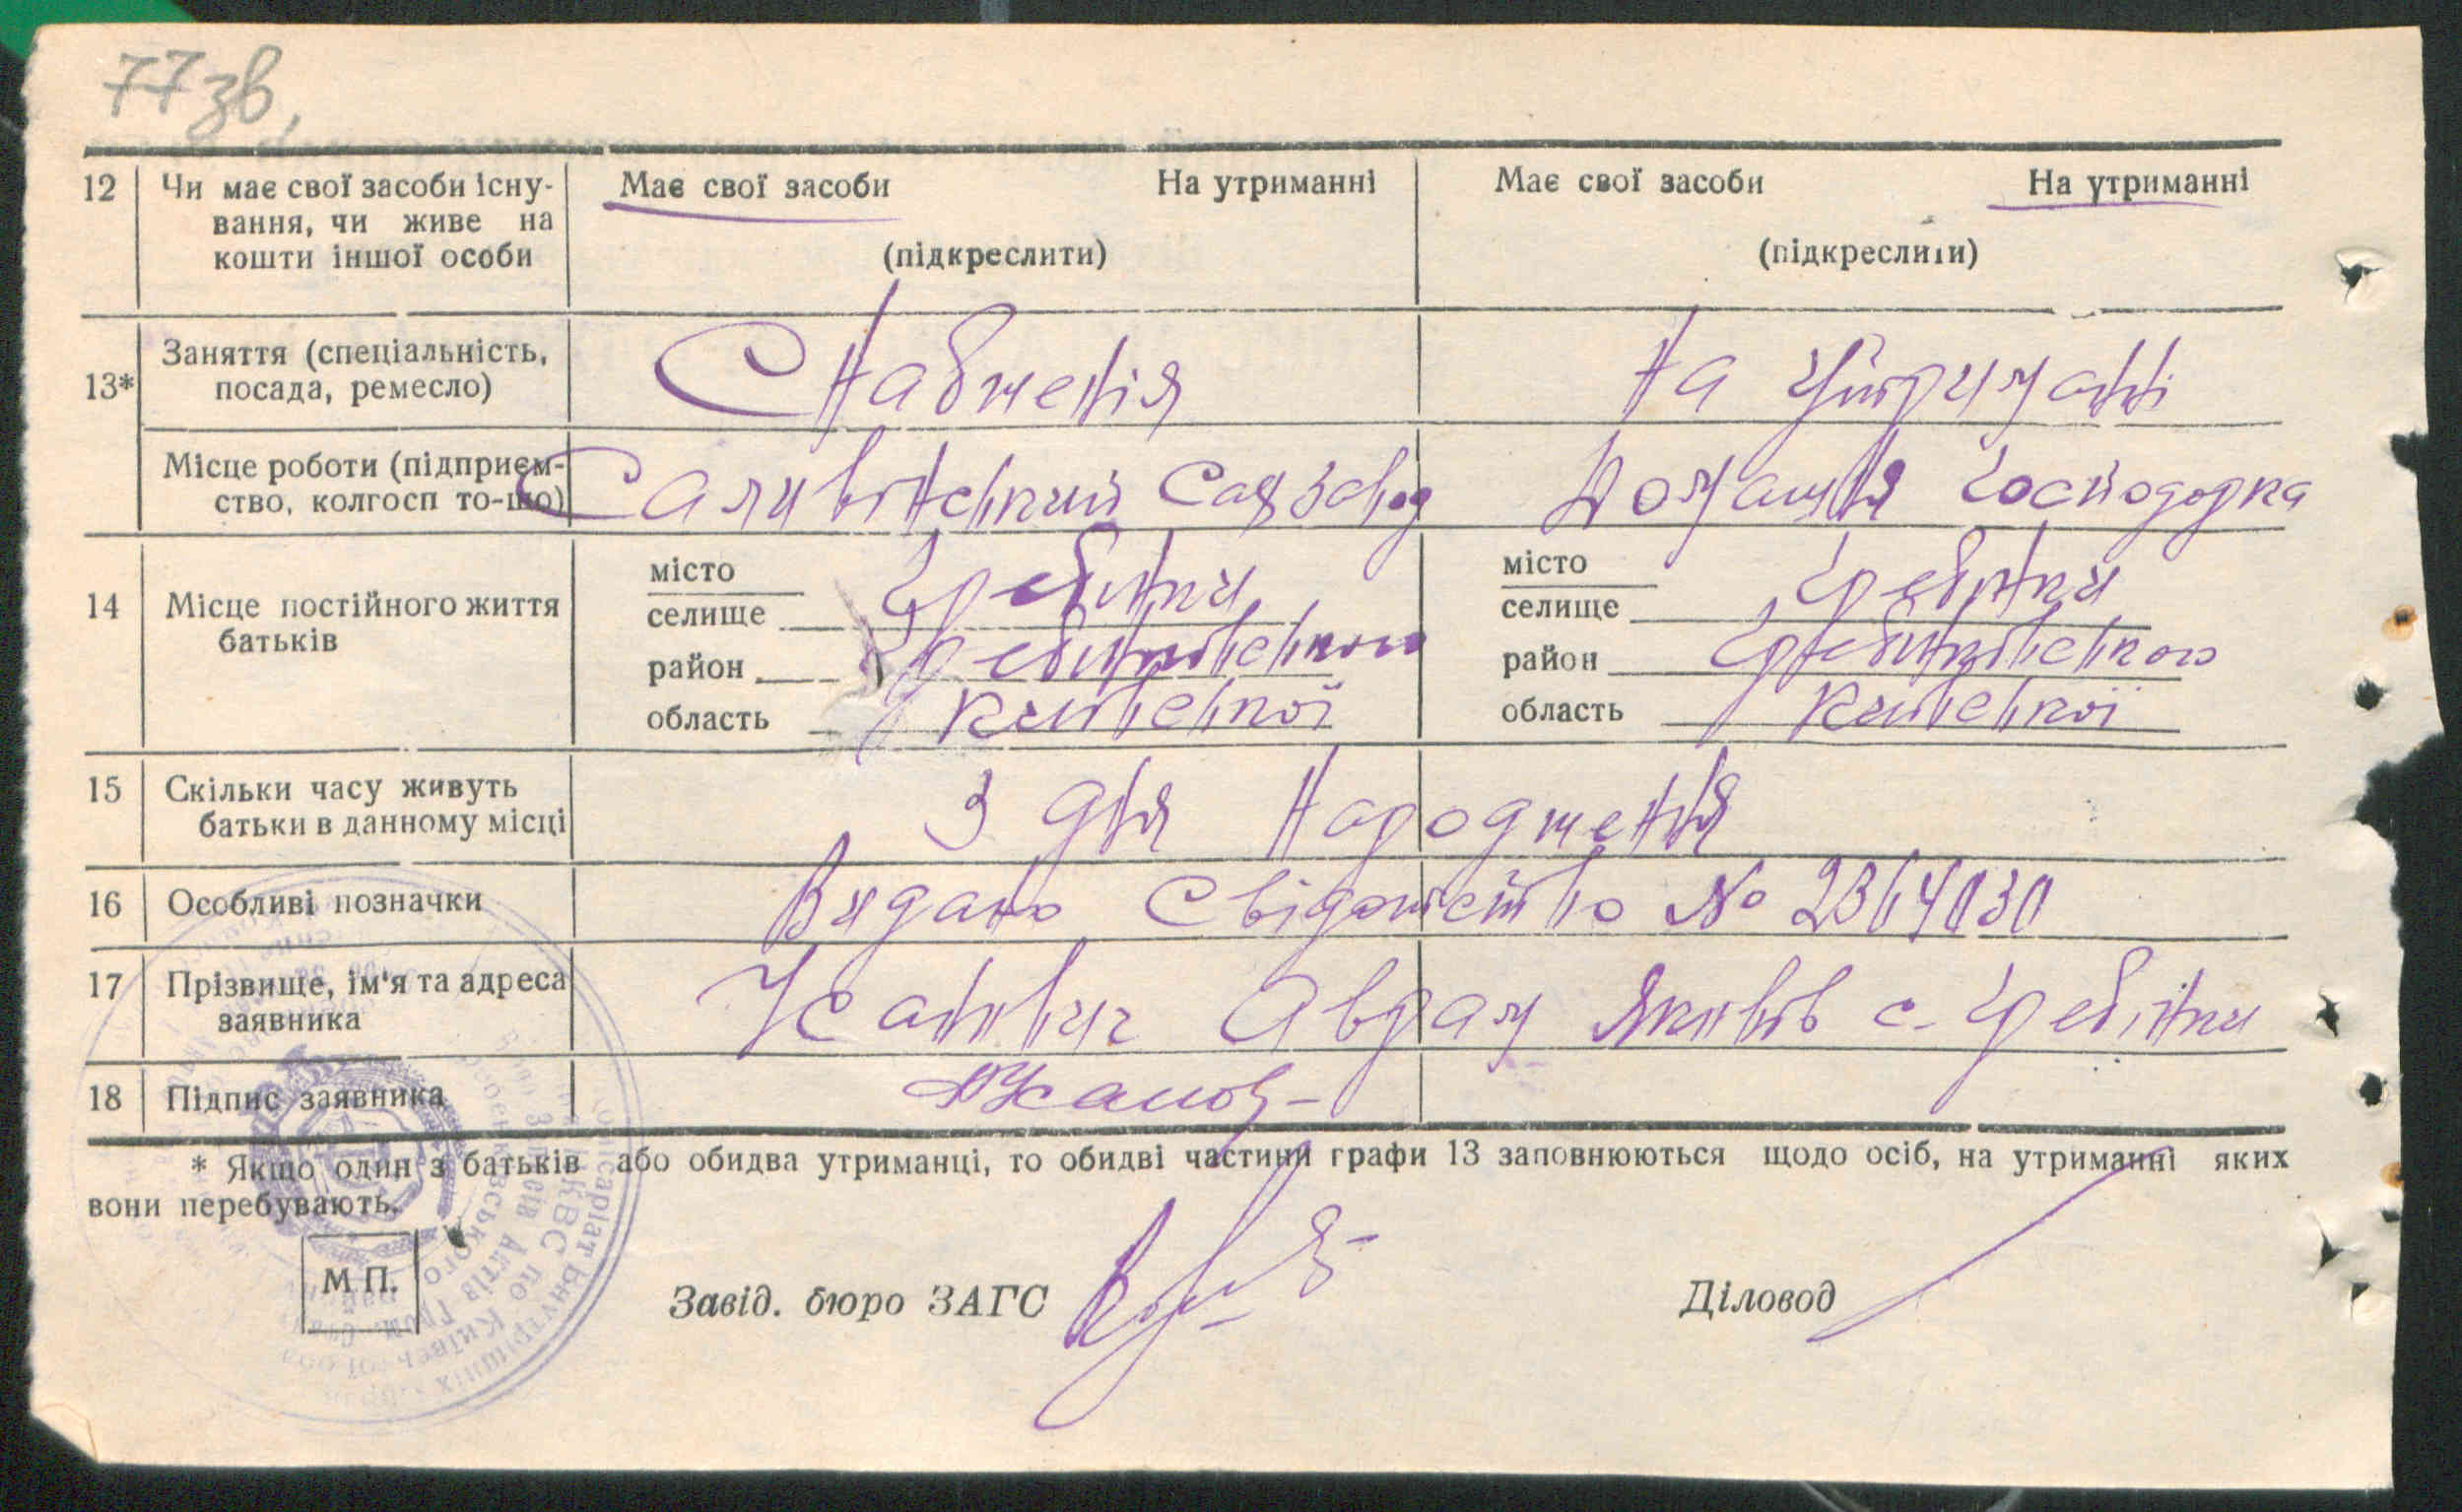 77 зв.
12 Чи має свої засоби існу- Має свої засоби На утриманні Має свої засоби На утриманні
вання, чи живе на
кошти іншої особи (підкреслити) (підкреслити)
13* Заняття (спеціальність, посада, ремесло) Снабженія На утриманні
Місце роботи (підприєм-
ство, колгосп то-що) Саливінський Сахзавод Домашня господорка
14 Місце постійного життя
батьків
місто
селище Гребінки
район Гребинківського
область Київської
місто
селище Гребінки
район Гребинківського
область Київської
15 Скільки часу живуть
батьки в данному місці З дня народження
16 Особливі позначки Видано Свідоцтво №
17 Прізвище, ім'я та адреса
заявника Аврам Яковів с. Гребінки
18 Підпис заявника
* Якщо один з батьків або обидва утриманці, то обидві частини графи 13 заповнюються щодо осіб, на утриманні яких
вони перебувають.
М П.
Завід. бюро ЗАГС Діловод